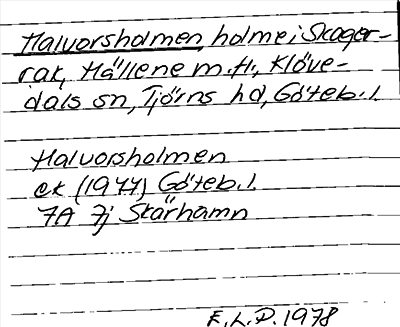 Halvorsholmen, holme i Skager-
rak, Hällene m.fl., Klöve-
dals sn, Tjörns hd, Göteb. l.
Halvorsholmen
ek (1977) Göteb. l.
7A 7j Skärhamn
E.L.D. 1978